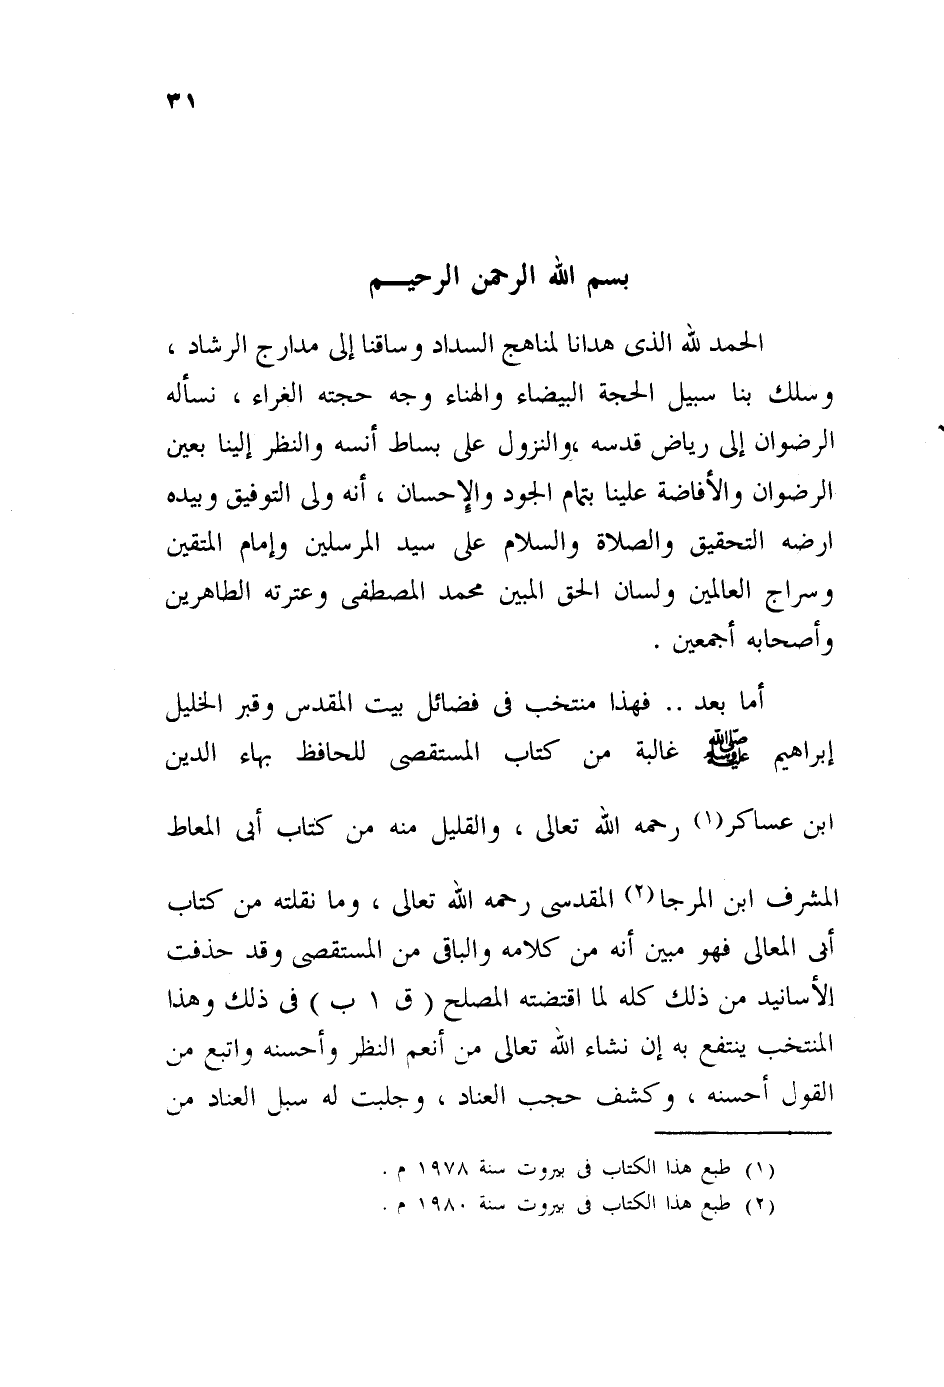 ٣١
بسم الله الرحمن الرحيم
الحمد لله الذى هدانا لمناهج السداد وساقنا إلى مدارج الرشاد ،
وسلك بنا سبيل الحجة البيضاء والهناء وجه حجته الغراء ، نسأله
الرضوان إلى رياض قدسه ،والنزول على بساط أنسه والنظر إلينا بعين
الرضوان والأفاضة علينا بتمام الجود والإحسان ، أنه ولى التوفيق وبيده
ارضه التحقيق والصلاة والسلام على سيد المرسلين وإمام المتقين
وسراج العالمين ولسان الحق المبين محمد المصطفى وعترته الطاهرين
وأصحابه أجمعين .
أما بعد .. فهذا منتخب فى فضائل بيت المقدس وقبر الخليل
إبراهيم ﷺ غالبة من كتاب المستقصى للحافظ بهاء الدين
ابن عساكر(١) رحمه الله تعالى ، والقليل منه من كتاب أبى المعاط
المشرف ابن المرجا(٢) المقدسى رحمه الله تعالى ، وما نقلته من كتاب
أبى المعالى فهو مبين أنه من كلامه والباقى من المستقصى وقد حذفت
الأسانيد من ذلك كله لما اقتضته المصلح ( ق ١ ب ) فى ذلك وهذا
المنتخب ينتفع به إن نشاء الله تعالى من أنعم النظر وأحسنه واتبع من
القول أحسنه ، وكشف حجب العناد ، وجلبت له سبل العناد من
(١) طبع هذا الكتاب فى بيروت سنة ١٩٧٨ م .
(٢) طبع هذا الكتاب فى بيروت سنة ١٩٨٠ م .